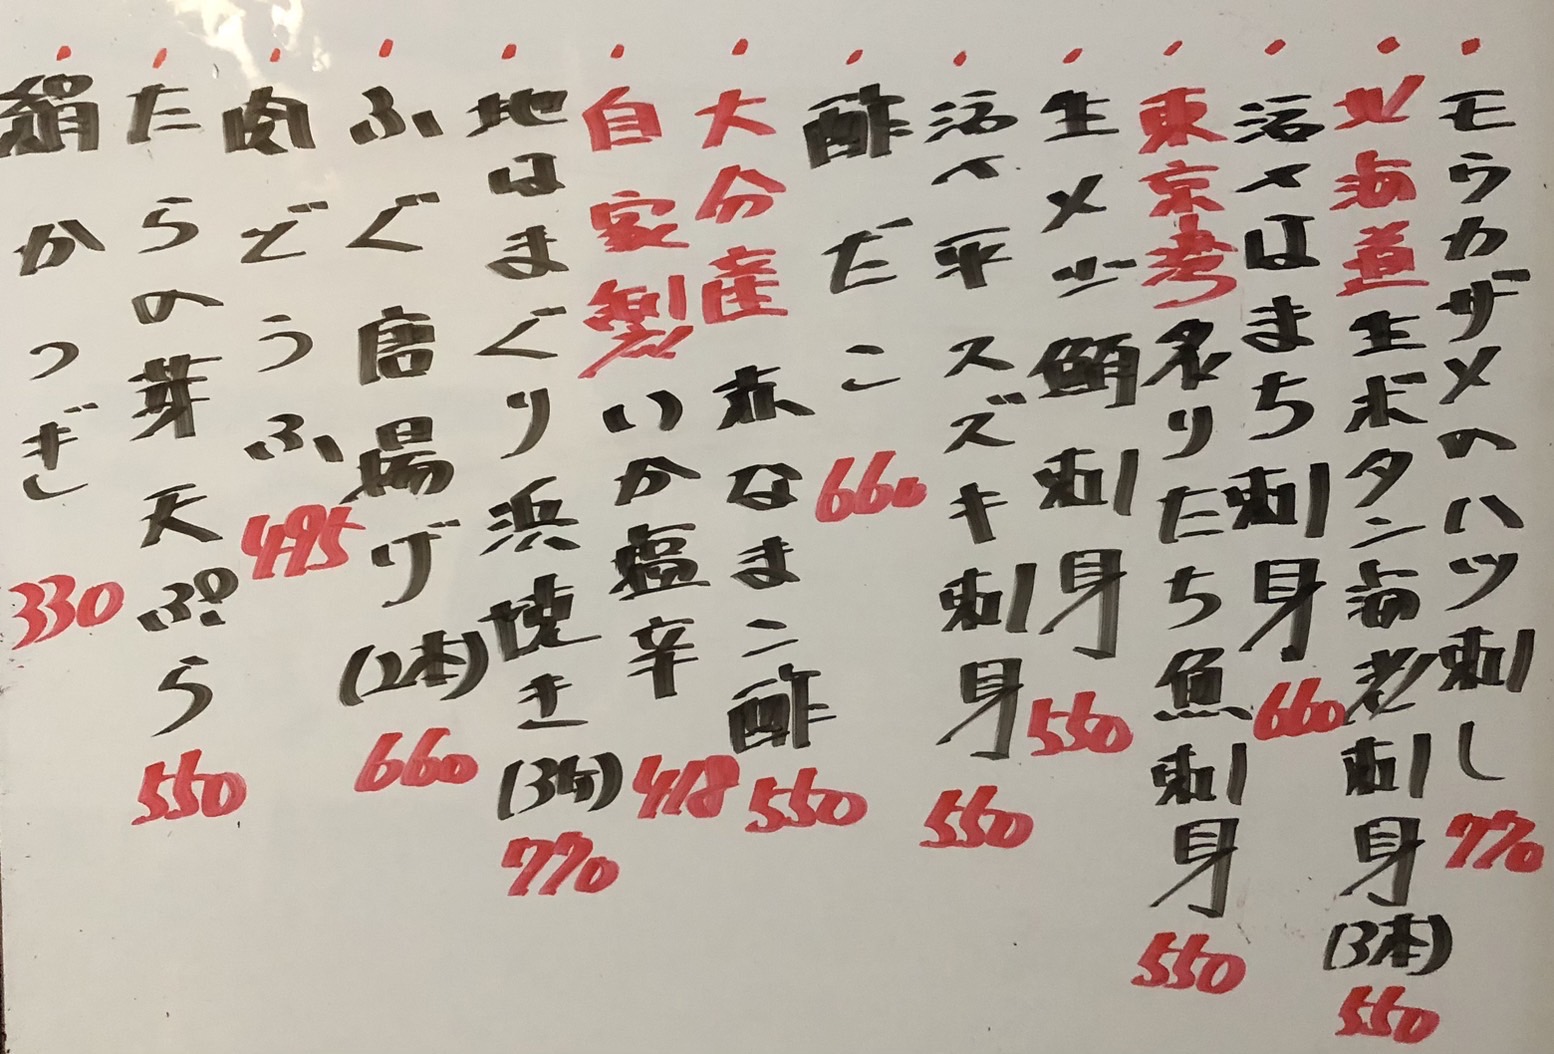 モウカザメのハツ刺し 770
北海道生ボタン海老刺身(3本) 550
活〆はまち刺身 660
東京湾炙りたち魚刺身 550
生〆 刺身 550
活〆平スズキ刺身 550
酢だこ 660
大分産赤なまこ酢 550
自家製いか塩辛 418
地はまぐり浜焼き(3ケ) 770
ふぐ唐揚げ(2本) 660
肉どうふ 495
たらの芽天ぷら 550
絹かつぎ 330